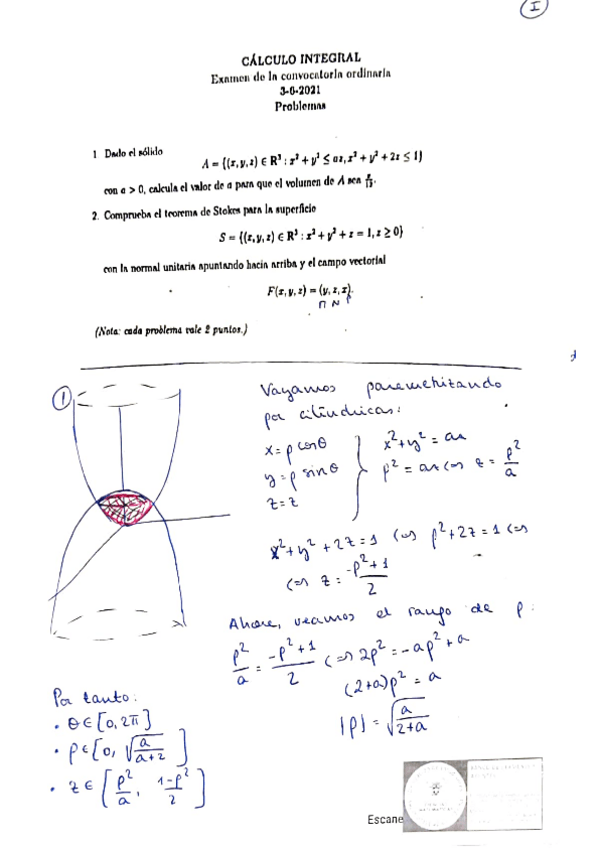 I
CÁLCULO INTEGRAL
Examen de la convocatoria ordinaria
3-6-2021
Problemas
1 Dado el sólido
A = {(x, y, z) ∈ R³ : x² + y² ≤ az, x² + y² + 2z ≤ 1}
con a > 0, calcula el valor de a para que el volumen de A sea
2. Comprueba el teorema de Stokes para la superficie
S = {(x, y, z) ∈ R³ : x² + y² + z = 1, z ≥ 0}
con la normal unitaria apuntando hacia arriba y el campo vectorial
F(x, y, z) = (y, z, x).
Π N P
(Nota: cada problema vale 2 puntos.)
1
Vayamos parametrizando
por cilíndricas:
x = ρ cosθ
y = ρ sinθ
z = z
x² + y² = az
ρ² = az ⇔ z = ρ²/a
x² + y² + 2z = 1 ⇔ ρ² + 2z = 1 ⇔
⇔ z = (-ρ² + 1)/2
Ahora, veamos el rango de ρ:
ρ²/a = (-ρ² + 1)/2 ⇔ 2ρ² = -aρ² + a
(2+a)ρ² = a
|ρ| = √(a/(2+a))
Por tanto:
· θ ∈ [0, 2π]
· ρ ∈ [0, √(a/(a+2))]
· z ∈ [ρ²/a, (1-ρ²)/2]
Escane